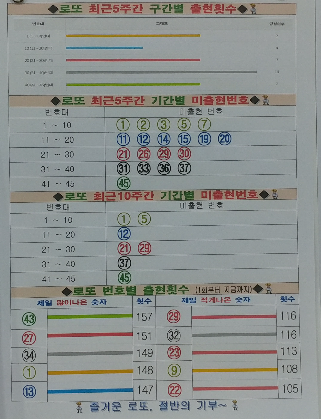 ◆로또 최근5주간 구간별 출현횟수◆
◆로또 최근5주간 기간별 미출현번호◆
번호대 미출현 번호
1 ~ 10 1 2 3 5 7
11 ~ 20 11 12 14 15 19 20
21 ~ 30 21 26 29 30
31 ~ 40 31 33 36 37
41 ~ 45 45
◆로또 최근10주간 기간별 미출현번호◆
번호대 미출현 번호
1 ~ 10 1 5
11 ~ 20 12
21 ~ 30 21 29
31 ~ 40 37
41 ~ 45 45
◆로또 번호별 출현횟수 (1회부터 지금까지)◆
제일 많이나온 숫자 횟수 제일 적게나온 숫자 횟수
43 157 29 116
27 151 32 116
34 149 23 113
1 148 9 108
13 147 22 105
즐거운 로또, 절반의 기부~